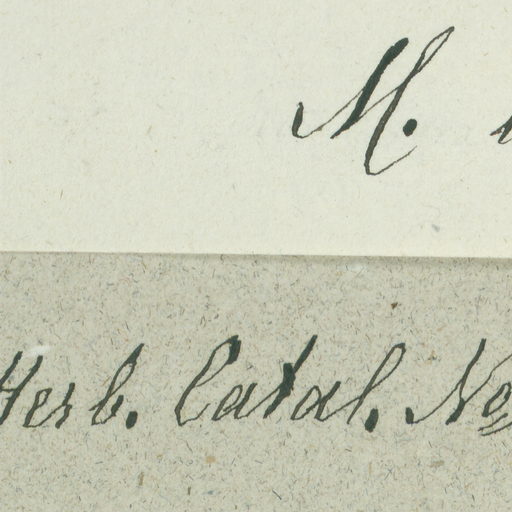 M.
Herb. Catal. No